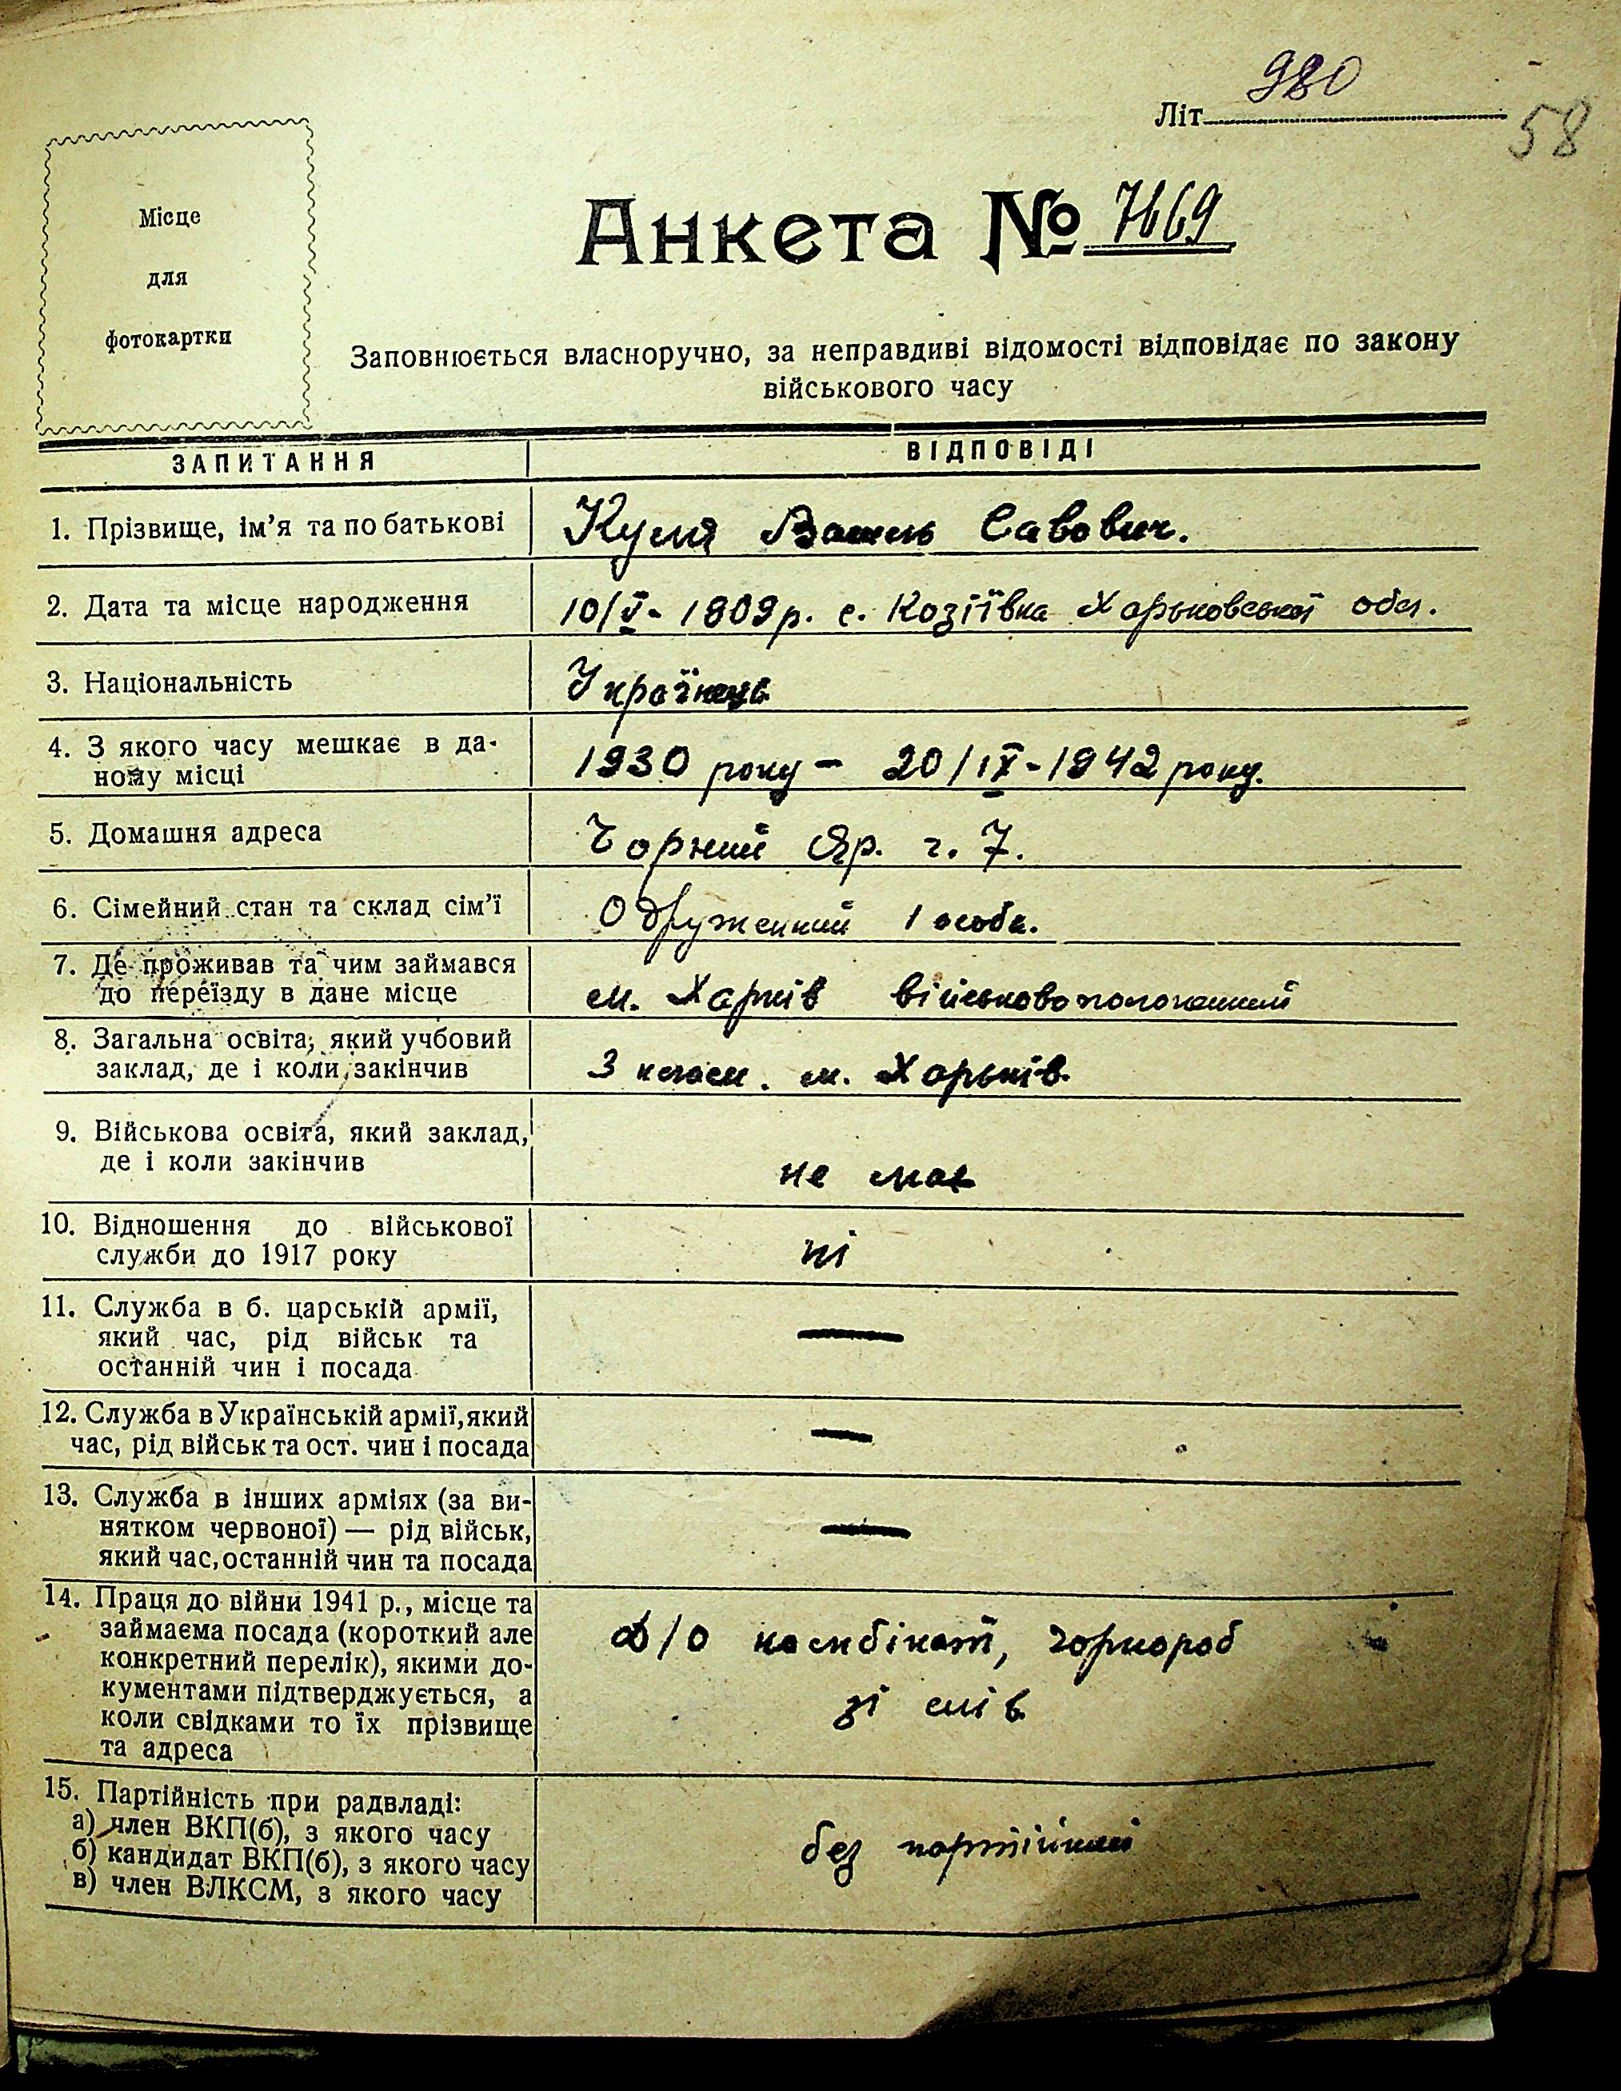 Літ 980
58
Місце
для
фотокартки
Анкета № 7669
Заповнюється власноручно, за неправдиві відомості відповідає по закону
військового часу
ЗАПИТАННЯ
ВІДПОВІДІ
1. Прізвище, ім'я та по батькові
Куля Савович.
2. Дата та місце народження
10/V - 1809 р. с. Козіївка Харьковської обл.
3. Національність
Українець
4. З якого часу мешкає в да-
ному місці
1930 року - 20/IX - 1942 року.
5. Домашня адреса
Чорний Яр. ч. 7.
6. Сімейний стан та склад сім'ї
Одруженний 1 особа.
7. Де проживав та чим займався
до переїзду в дане місце
м. Харків військовополоненний
8. Загальна освіта, який учбовий
заклад, де і коли закінчив
3 клас. м. Харьків
9. Військова освіта, який заклад,
де і коли закінчив
не має
10. Відношення до військової
служби до 1917 року
ні
11. Служба в б. царській армії,
який час, рід військ та
останній чин і посада
—
12. Служба в Українській армії, який
час, рід військ та ост. чин і посада
—
13. Служба в інших арміях (за ви-
нятком червоної) — рід військ,
який час, останній чин та посада
—
14. Праця до війни 1941 р., місце та
займаєма посада (короткий але
конкретний перелік), якими до-
кументами підтверджується, а
коли свідками то їх прізвище
та адреса
Д/О комбінат, чорнороб
зі слів
15. Партійність при радвладі:
а) член ВКП(б), з якого часу
б) кандидат ВКП(б), з якого часу
в) член ВЛКСМ, з якого часу
без партійний